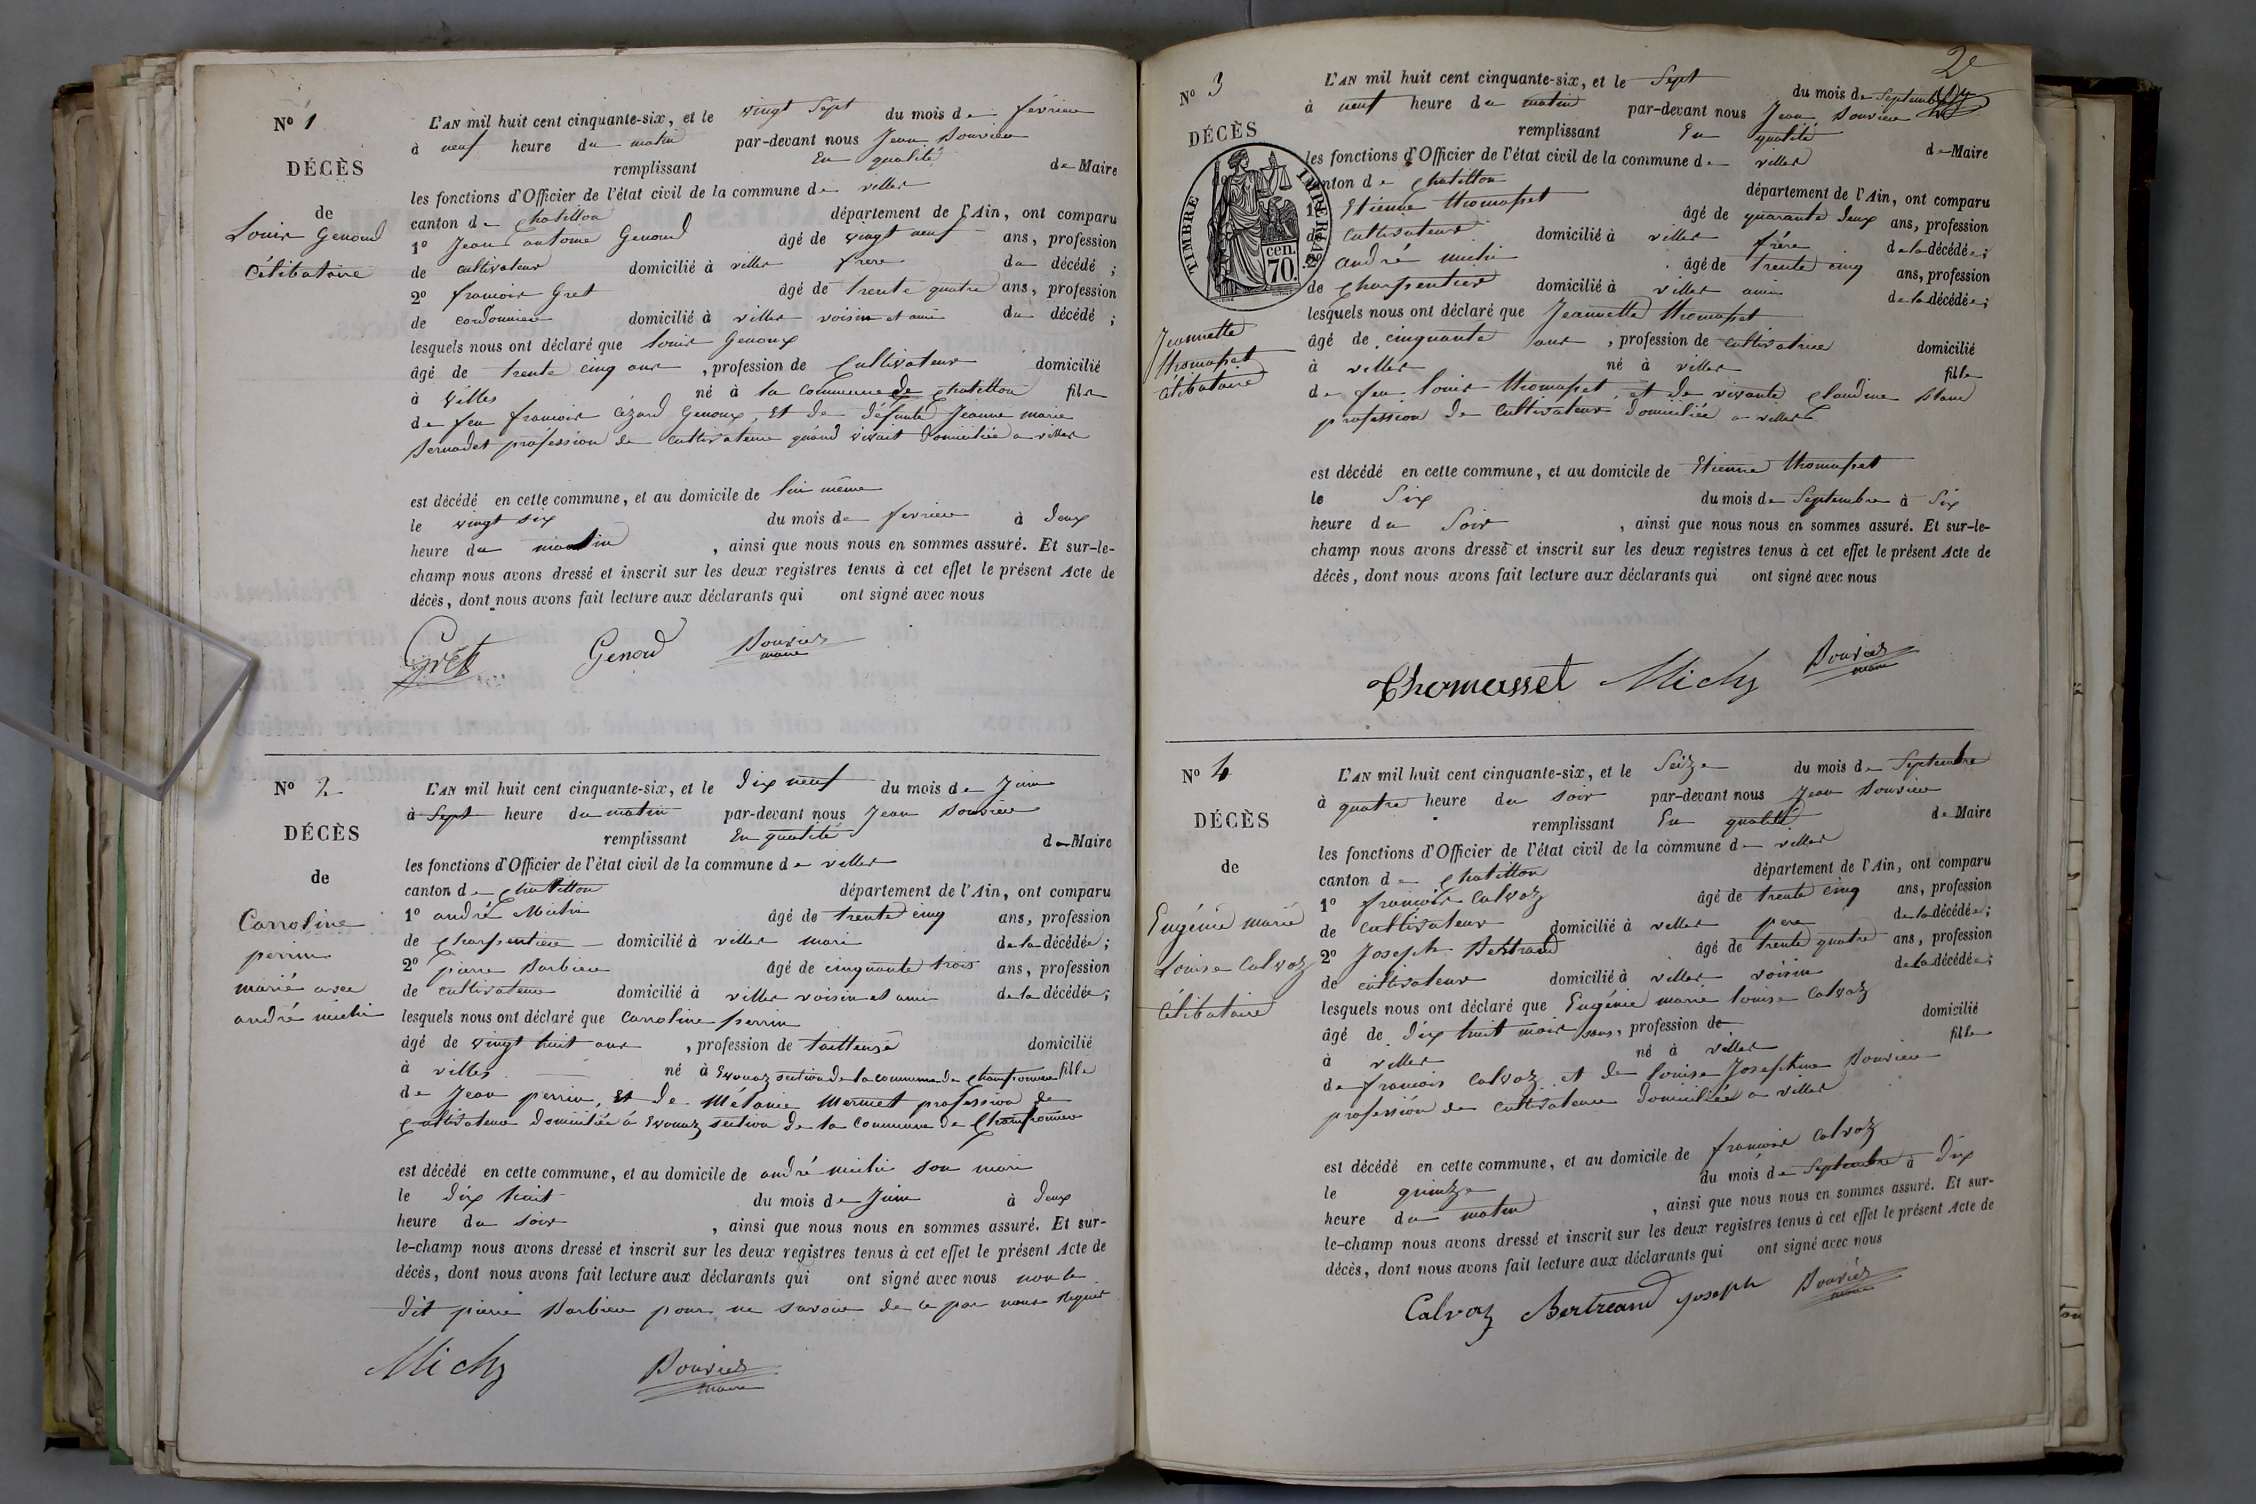 Nº 1
DÉCÈS
de
Louis Genoud
Célibataire
L'AN mil huit cent cinquante-six, et le vingt Sept du mois de février
à neuf heure du matin par-devant nous Jean Bouvier
remplissant En qualité de Maire
les fonctions d'Officier de l'état civil de la commune de villes
canton de Chatillon département de l'Ain, ont comparu
1º Jean antoine Genoud âgé de vingt neuf ans, profession
de cultivateur domicilié à villes frere du décédé ;
2º francois Gret âgé de trente quatre ans, profession
de cordonnier domicilié à villes voisin et ami du décédé ;
lesquels nous ont déclaré que Louis Genoux
âgé de trente cinq ans , profession de Cultivateur domicilié
à villes né à la Commune de Chatillon fils
de feu francois Cézard Genoux, Et de défunte Jeanne marie
Bernadet profession de Cultivateur quand vivait domiciliée a villes
est décédé en cette commune, et au domicile de lui même
le vingt six du mois de fevrier à deux
heure du matin , ainsi que nous nous en sommes assuré. Et sur-le-
champ nous avons dressé et inscrit sur les deux registres tenus à cet effet le présent Acte de
décès, dont nous avons fait lecture aux déclarants qui ont signé avec nous
Gret Genoud Bouvier
maire
Nº 2
DÉCÈS
de
Carroline
perrin
marié avec
andré michi
L'AN mil huit cent cinquante-six, et le dix neuf du mois de Juin
à Sept heure du matin par-devant nous Jean Bouvier
remplissant En qualité de Maire
les fonctions d'Officier de l'état civil de la commune de villes
canton de Chatillon département de l'Ain, ont comparu
1º andré Michi âgé de trente cinq ans, profession
de Charpentier domicilié à villes mari de la décédée ;
2º pierre Barbier âgé de cinquante trois ans, profession
de cultivateur domicilié à villes voisin et ami de la décédée ;
lesquels nous ont déclaré que Carroline perrin
âgé de vingt huit ans , profession de tailleuse domicilié
à villes né à Evouaz section de la commune de Chanfromier fille
de Jean perrin, Et de Mélanie Mermet profession de
Cultivateur domiciliée á Evouaz section de la Commune de Chanfromier
est décédé en cette commune, et au domicile de andré michi son mari
le dix huit du mois de Juin à deux
heure du soir , ainsi que nous nous en sommes assuré. Et sur-
le-champ nous avons dressé et inscrit sur les deux registres tenus à cet effet le présent Acte de
décès, dont nous avons fait lecture aux déclarants qui ont signé avec nous non le
dit pierre Barbier pour ne savoir de ce par nous Requis
Michy Bouvier
maire
2e
Nº 3
DÉCÈS
TIMBRE IMPERIAL
cen.
70.
Jeannette
thomasset
célibataire
L'AN mil huit cent cinquante-six, et le Sept du mois de Septembre
à neuf heure du matin par-devant nous Jean Bouvier
remplissant En qualité de Maire
les fonctions d'Officier de l'état civil de la commune de villes
canton de Chatillon département de l'Ain, ont comparu
1º Etienne thomasset âgé de quarante deux ans, profession
de Cultivateur domicilié à villes frére de la décédée ;
andré michi âgé de trente cinq ans, profession
de Charpentier domicilié à villes ami de la décédée ;
lesquels nous ont déclaré que Jeannette thomasset
âgé de cinquante ans , profession de cultivatrice domicilié
à villes né à villes fille
de feu Louis thomasset, et de vivante Claudine Blanc
profession de Cultivateur domiciliée a villes
est décédé en cette commune, et au domicile de Etienne thomasset
le Six du mois de Septembre à Six
heure du Soir , ainsi que nous nous en sommes assuré. Et sur-le-
champ nous avons dressé et inscrit sur les deux registres tenus à cet effet le présent Acte de
décès, dont nous avons fait lecture aux déclarants qui ont signé avec nous
Thomasset Michy Bouvier
maire
Nº 4
DÉCÈS
de
Eugénie marie
Louise Calvoz
Célibataire
L'AN mil huit cent cinquante-six, et le Seize du mois de Septembre
à quatre heure du soir par-devant nous Jean Bouvier
remplissant En qualité de Maire
les fonctions d'Officier de l'état civil de la commune de villes
canton de Chatillon département de l'Ain, ont comparu
1º francois Calvoz âgé de trente cinq ans, profession
de cultivateur domicilié à villes pere de la décédée ;
2º Joseph Bertrand âgé de trente quatre ans, profession
de cultivateur domicilié à villes voisin de la décédée ;
lesquels nous ont déclaré que Eugénie marie louise Calvoz
âgé de dix huit mois ans, profession de domicilié
à villes né à villes fille
de francois Calvoz et de louise Josephine Bouvier
profession de cultivateur domiciliée a villes
est décédé en cette commune, et au domicile de francois Calvoz
le quinze du mois de Septembre à dix
heure du matin , ainsi que nous nous en sommes assuré. Et sur-
le-champ nous avons dressé et inscrit sur les deux registres tenus à cet effet le présent Acte de
décès, dont nous avons fait lecture aux déclarants qui ont signé avec nous
Calvoz Bertreand joseph Bouvier
maire